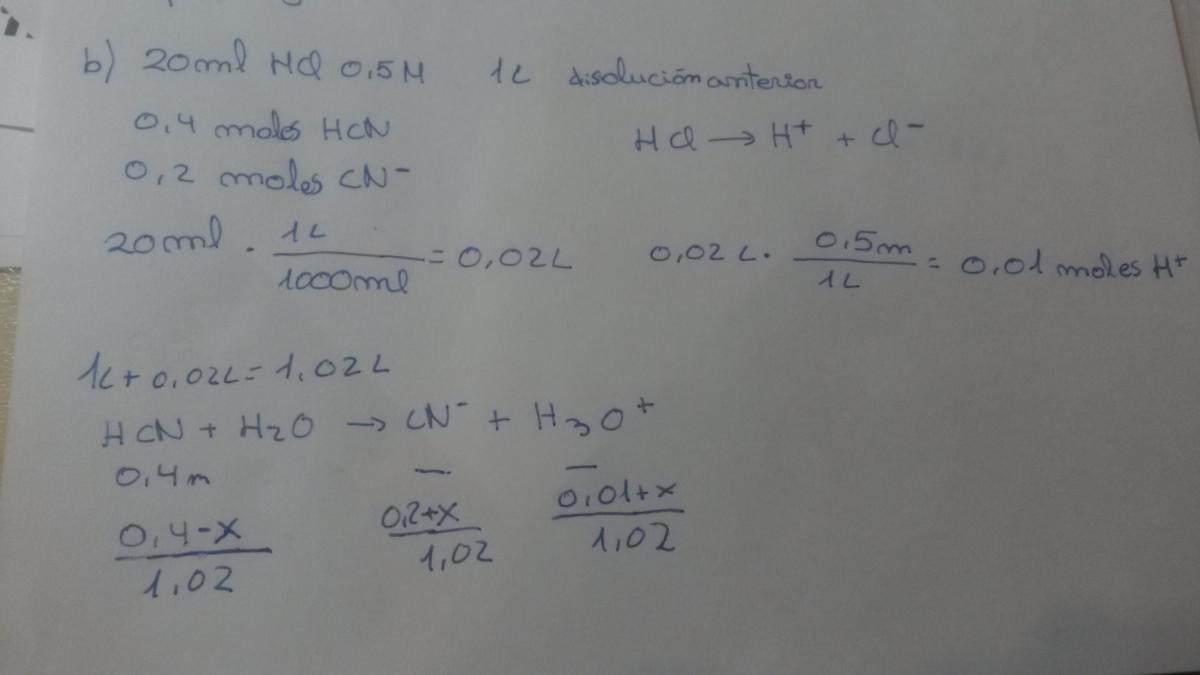 b) 20ml HCl 0,5M 1L disolución anterior
0,4 moles HCN HCl → H⁺ + Cl⁻
0,2 moles CN⁻
20ml · 1L / 1000ml = 0,02L 0,02L · 0,5m / 1L = 0,01 moles H⁺
1L + 0,02L = 1,02L
HCN + H₂O → CN⁻ + H₃O⁺
0,4m — —
0,4-x / 1,02 0,2+x / 1,02 0,01+x / 1,02